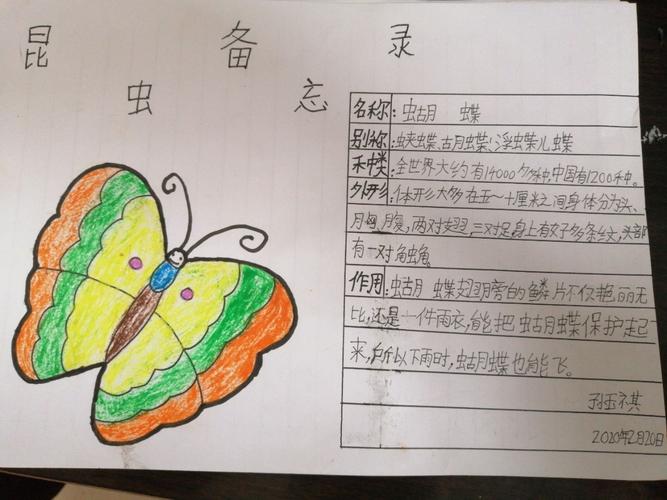 昆 备 录
虫 忘
名称: 蝴 蝶
别称: 蛱蝶、胡蝶、浮蝶儿蝶
种类: 全世界大约有14000多种,中国有1200种。
外形: 体形大多在五~十厘米之间身体分为头、
胸、腹,两对翅,三对足,身上有好多条纹,头部
有一对触角。
作用: 蝴 蝶翅膀的鳞片不仅艳丽无
比,还是一件雨衣,能把蝴蝶保护起
来,所以下雨时,蝴蝶也能飞。
2020年2月20日